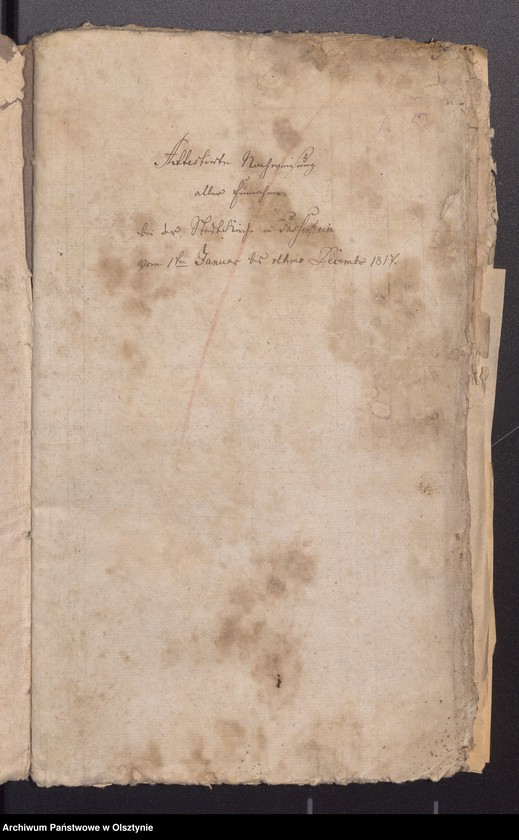 Attestirte Nachweisung
aller Einnahmen
bei der Stadt Kirche in Passenheim
vom 1ten Januar bis ultimo December 1817.
Archiwum Państwowe w Olsztynie